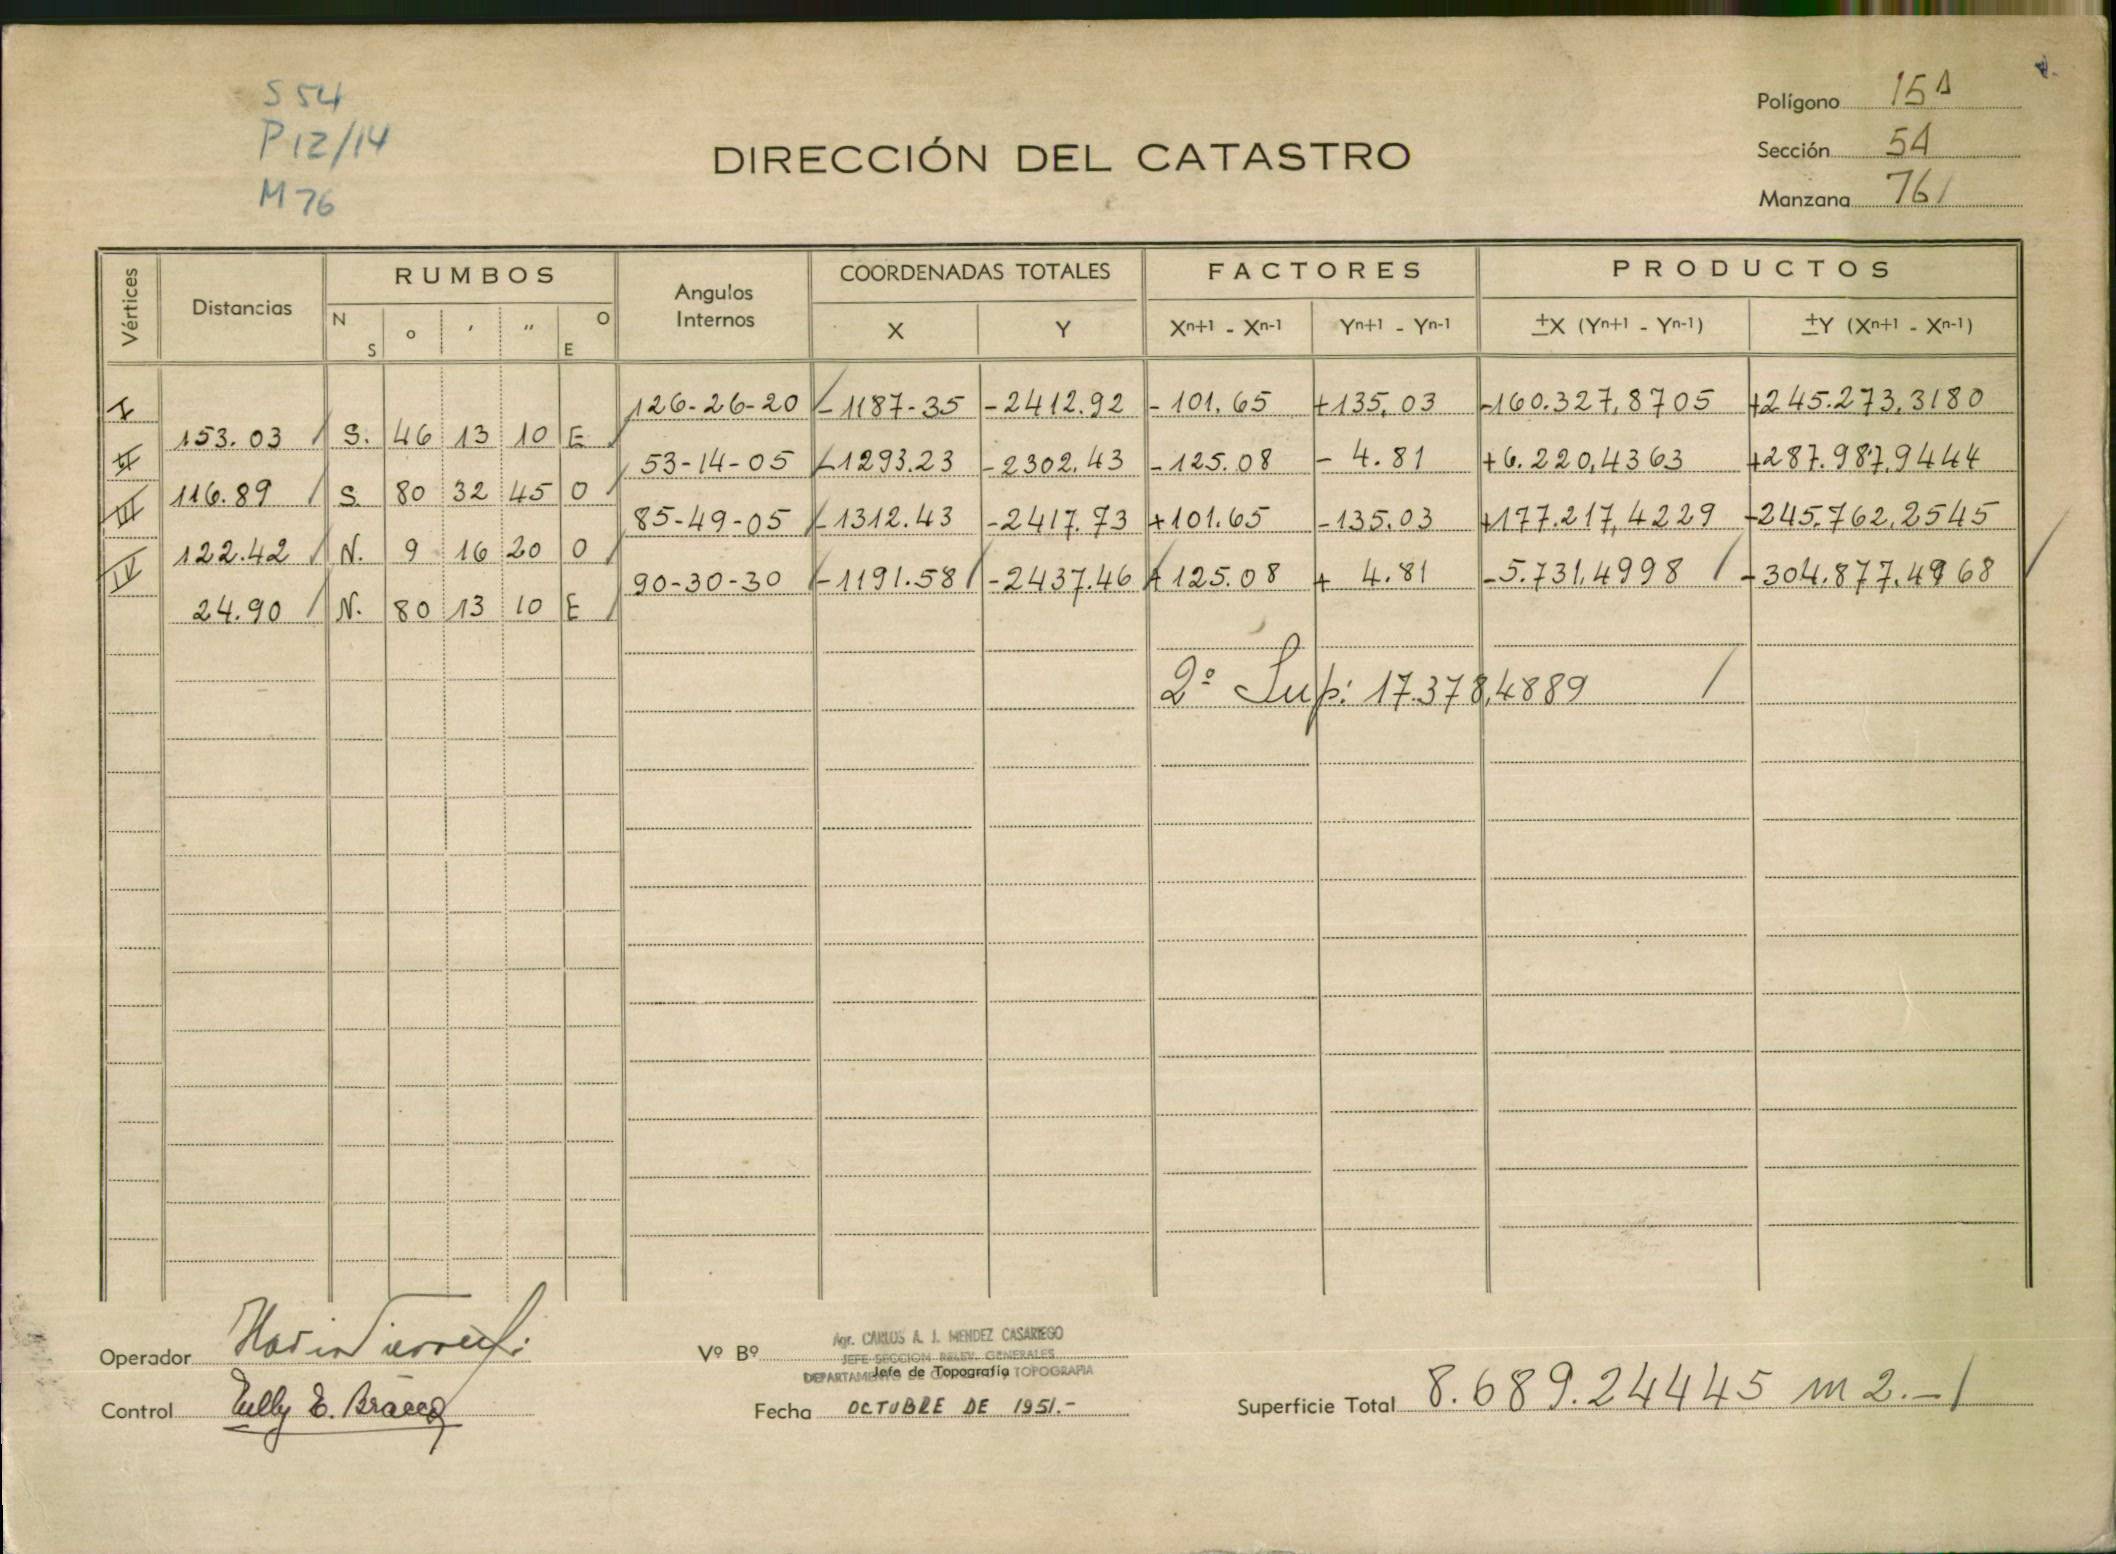 S 54
P 12/14
M 76
DIRECCIÓN DEL CATASTRO
Polígono 15A
Sección 54
Manzana 76
Vértices
Distancias
RUMBOS
N S ° ′ ″ O E
Angulos Internos
COORDENADAS TOTALES
X Y
FACTORES
Xn+1 - Xn-1 Yn+1 - Yn-1
PRODUCTOS
±X (Yn+1 - Yn-1) ±Y (Xn+1 - Xn-1)
I 126-26-20 -1187-35 -2412.92 -101.65 +135,03 -160.327,8705 +245.273,3180
153.03 S. 46 13 10 E
II 53-14-05 -1293.23 -2302.43 -125.08 - 4.81 +6.220,4363 +287.987,9444
116.89 S. 80 32 45 O
III 85-49-05 -1312.43 -2417.73 +101.65 -135.03 +177.217,4229 -245.762,2545
122.42 N. 9 16 20 O
IV 90-30-30 -1191.58 -2437.46 +125.08 + 4.81 -5.731,4998 -304.877.4968
24.90 N. 80 13 10 E
2º Sup: 17.378,4889
Operador
Control
Vº Bº
Agr. CARLOS A. J. MENDEZ CASARIEGO
JEFE SECCION RELEV. GENERALES
Jefe de Topografía
DEPARTAMENTO DE TOPOGRAFIA
Fecha OCTUBRE DE 1951.-
Superficie Total 8.689.24445 m2.-